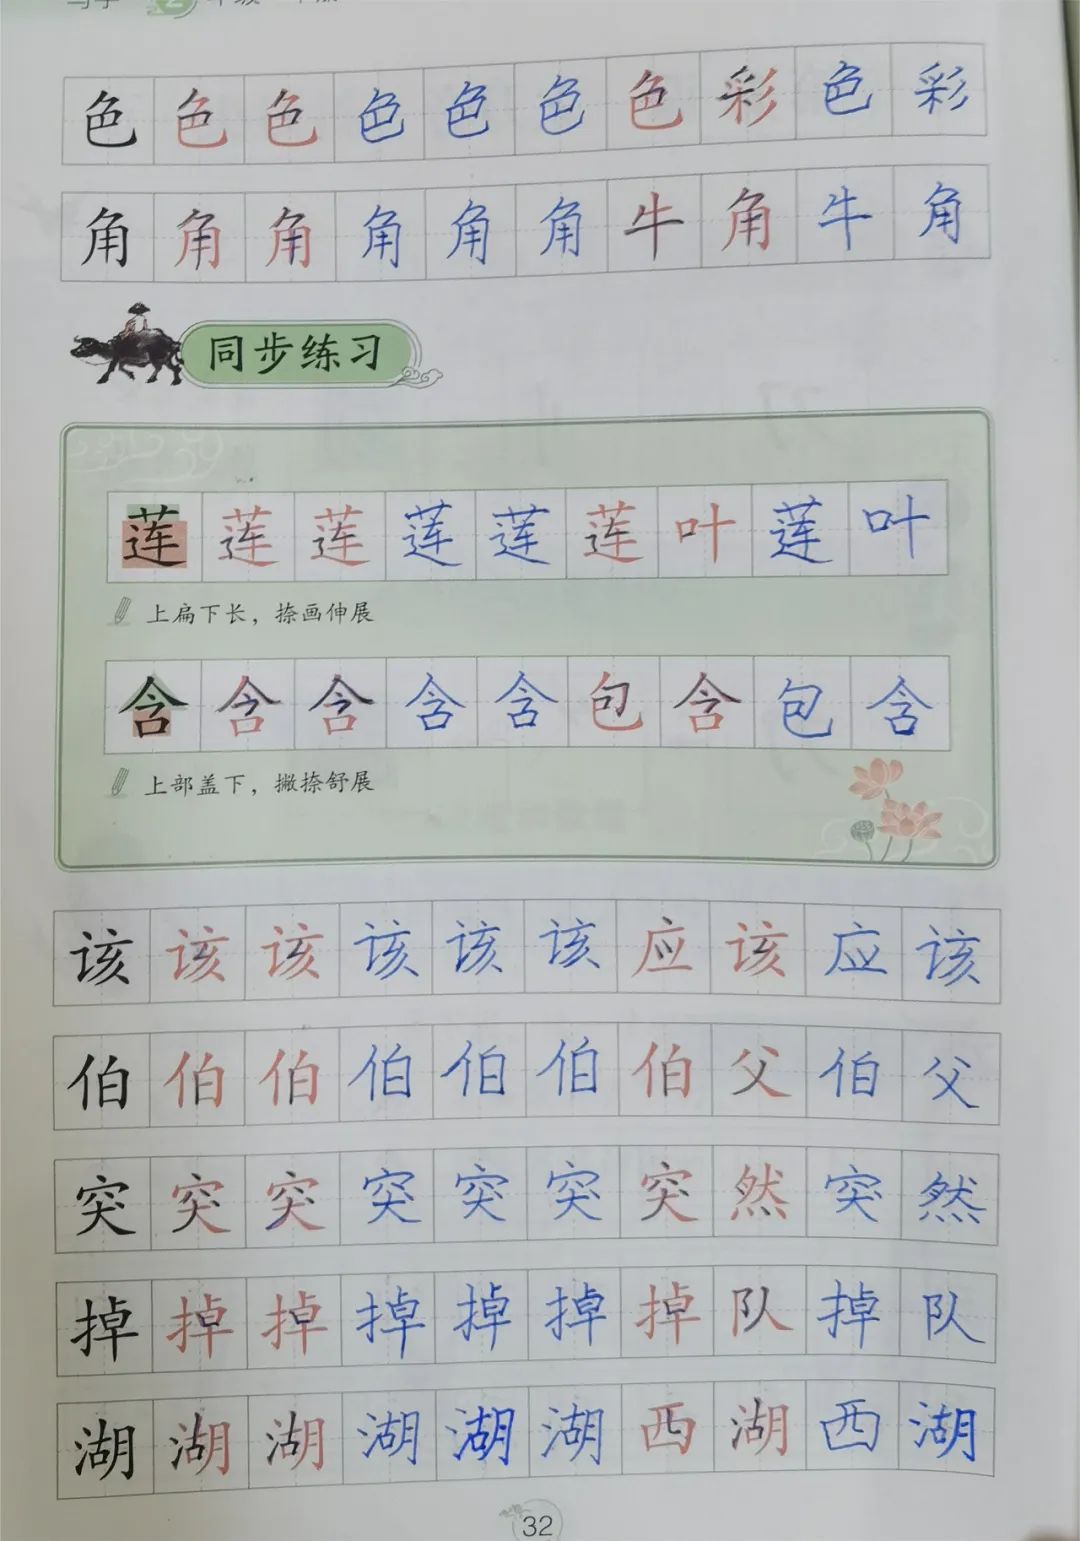 色色色色色色色彩色彩
角角角角角角牛角牛角
同步练习
莲莲莲莲莲莲叶莲叶
上扁下长，捺画伸展
含含含含含包含包含
上部盖下，撇捺舒展
该该该该该该应该应该
伯伯伯伯伯伯伯父伯父
突突突突突突突然突然
掉掉掉掉掉掉掉队掉队
湖湖湖湖湖湖西湖西湖
32